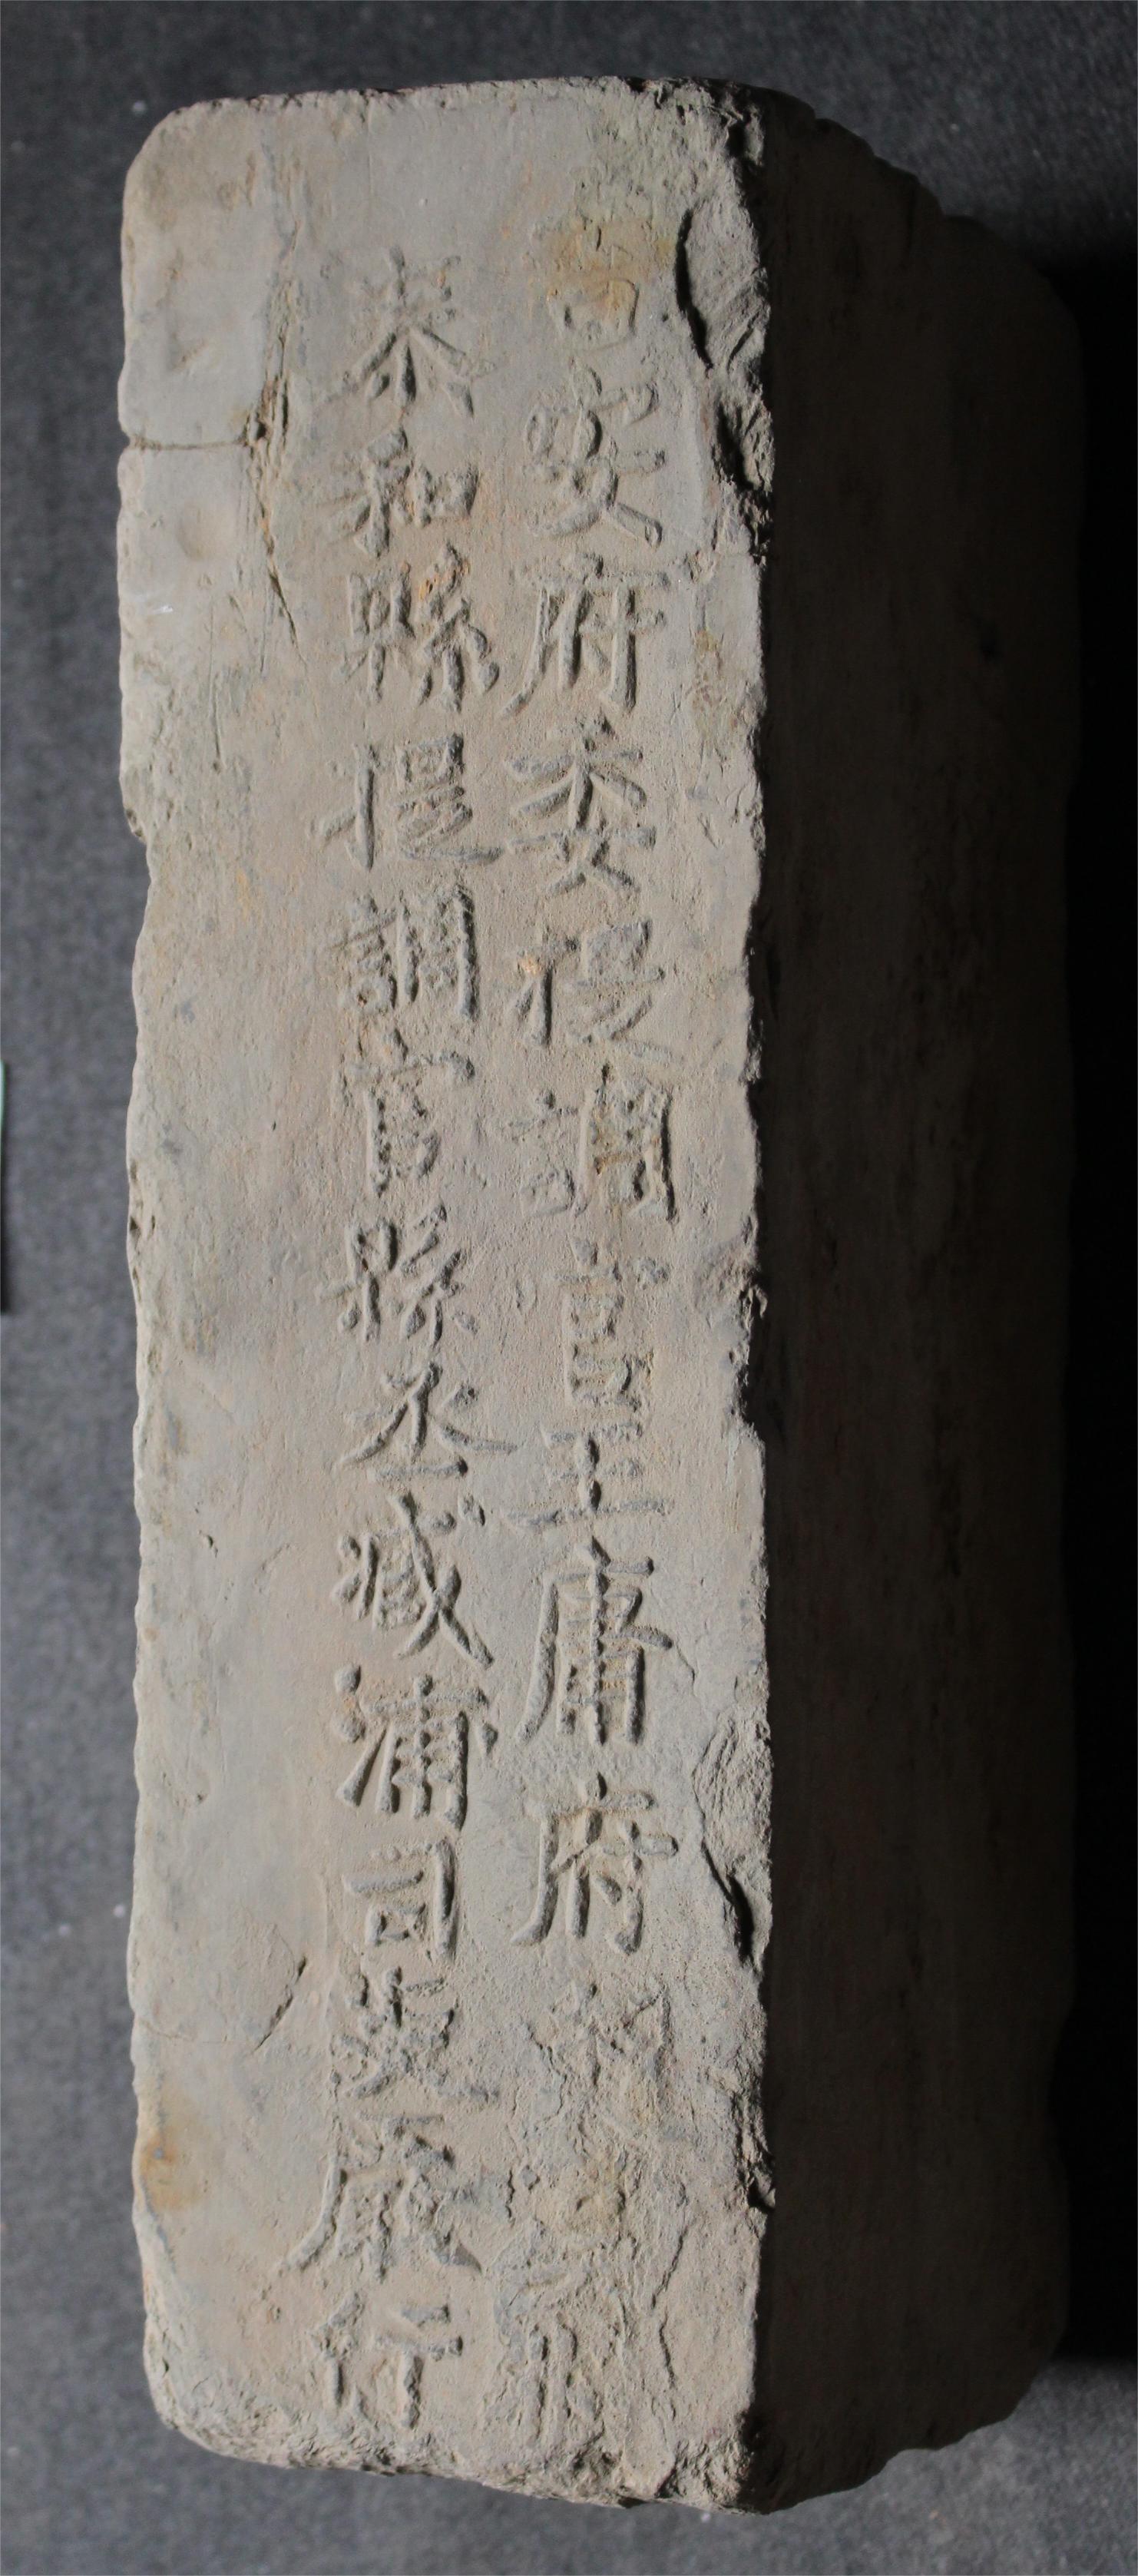 吉安府委提調官王庸府
泰和縣提調官縣丞臧浦司吏嚴行